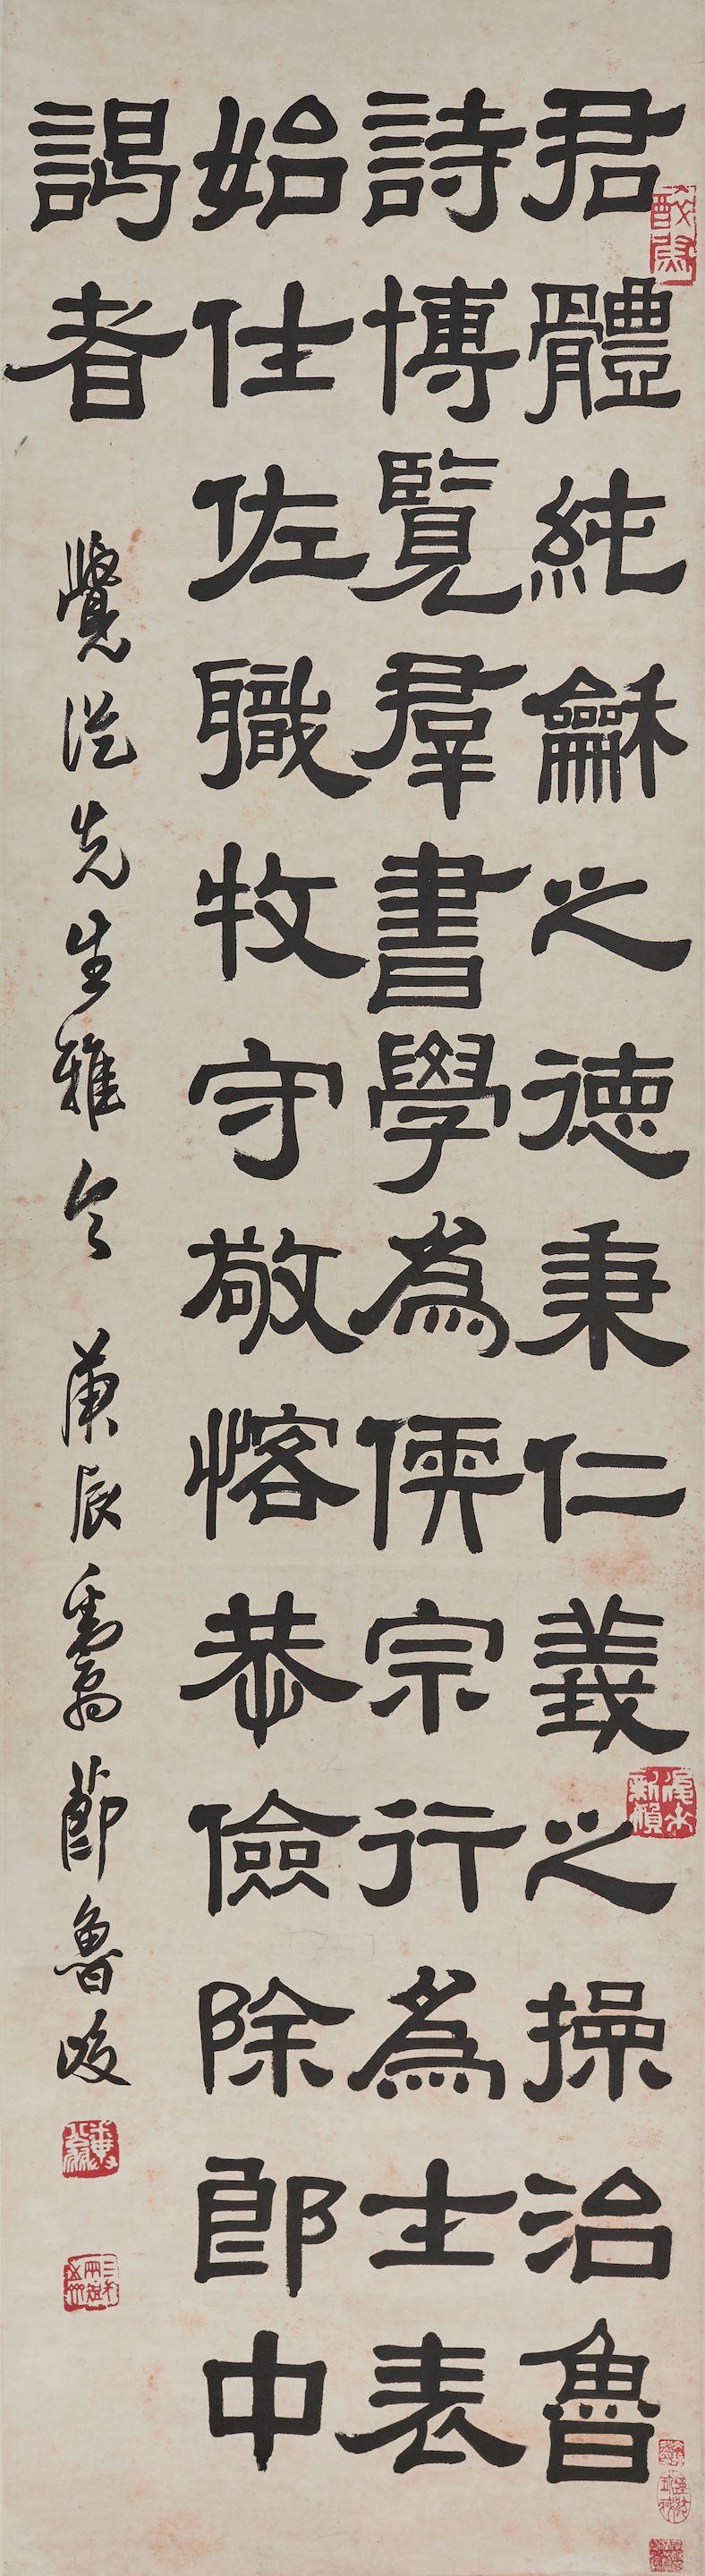 君體純龢之德秉仁義之操治魯
詩博覽羣書學為儒宗行為士表
始仕佐職牧守敬恪恭儉除郎中
謁者
覺從先生雅令 庚辰 節魯峻